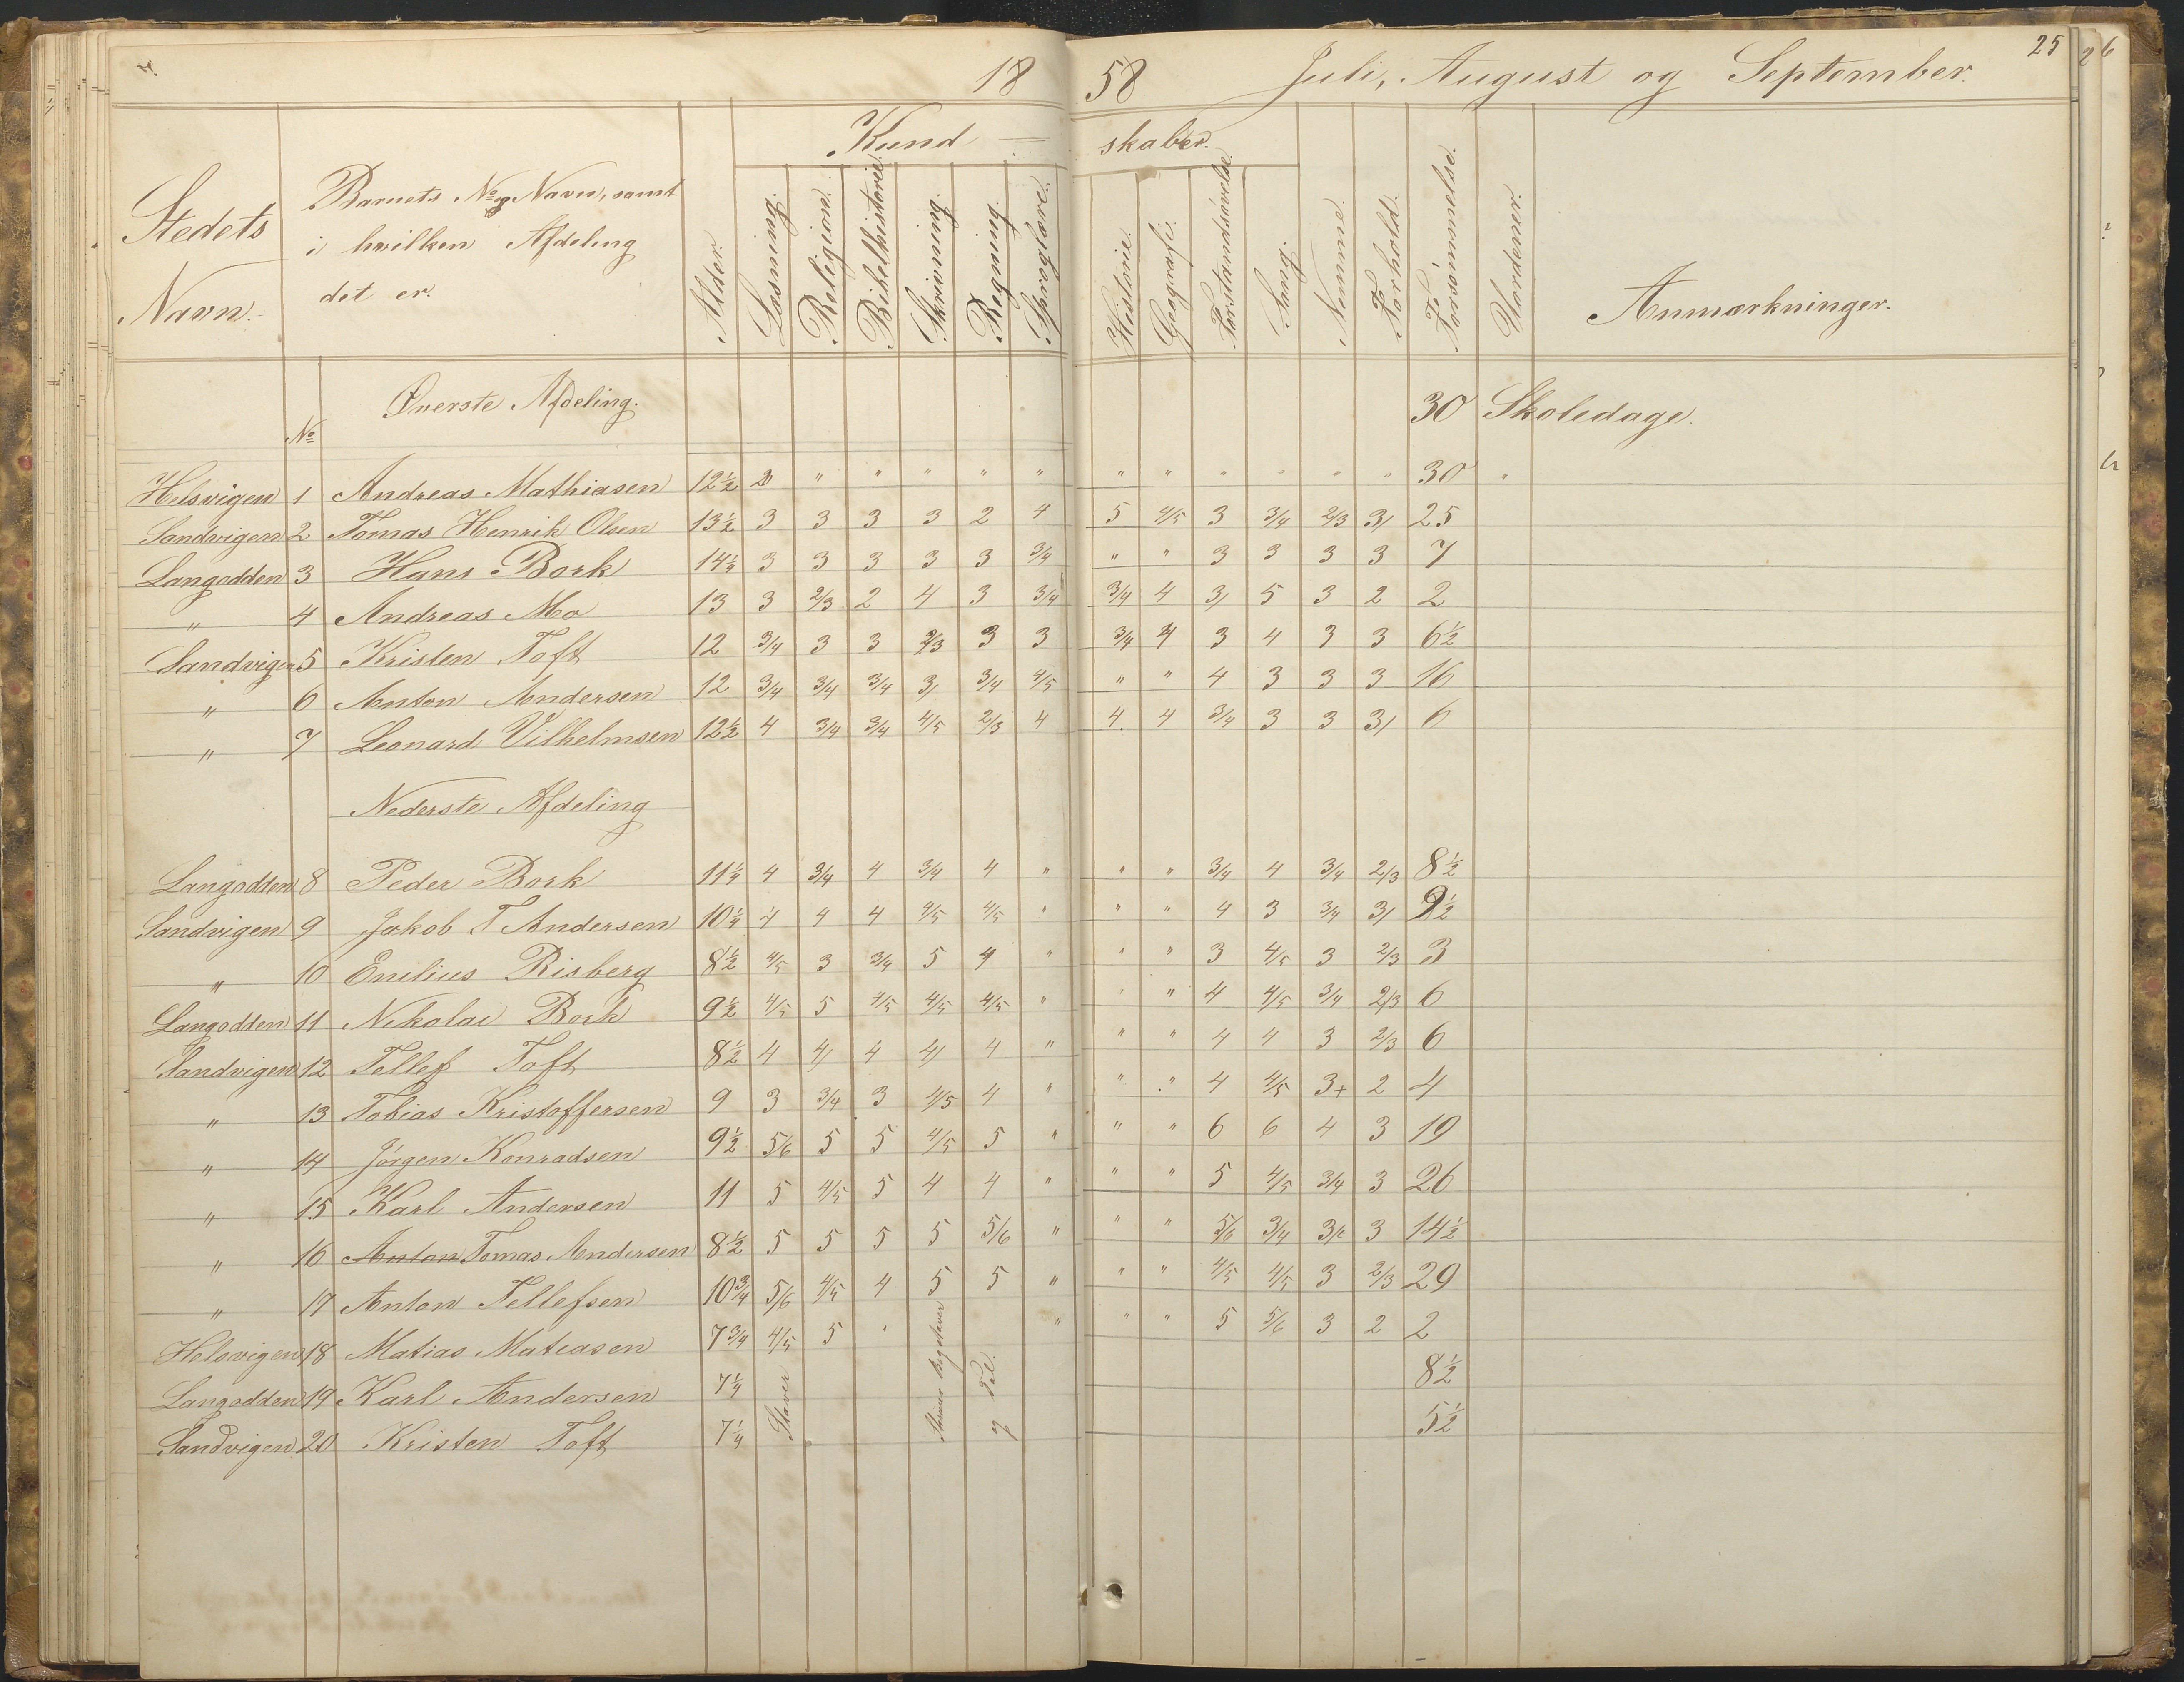 18 58 Juli, August og September. 25
Kund- skaber.
Stedets Navn.
Barnets No og Navn, samt
i hvilken Afdeling
det er.
Alder.
Læsning.
Religion.
Bibelhistorie.
Skrivning.
Regning.
Sproglære.
Historie.
Geografi.
Forstandsøvelse.
Sang.
Nemme.
Forhold.
Forsømmelse.
Uordener.
Anmærkninger.
No Øverste Afdeling. 30 Skoledage.
Helsvigen 1 Andreas Mathiasen 12½ 3 " " " " " " " " " " " 30 "
Sandvigen 2 Tomas Henrik Olsen 13½ 3 3 3 3 2 4 5 4/5 3 3/4 2/3 3/ 25
Langodden 3 Hans Bork 14¼ 3 3 3 3 3 3/4 " " 3 3 3 3 7
" 4 Andreas Mo 13 3 2/3 2 4 3 3/4 3/4 4 3/ 5 3 2 2
Sandvigen 5 Kristen Toft 12 3/4 3 3 2/3 3 3 3/4 4 3 4 3 3 6½
" 6 Anton Andersen 12 3/4 3/4 3/4 3/ 3/4 4/5 " " 4 3 3 3 16
" 7 Leonard Vilhelmsen 12½ 4 3/4 3/4 4/5 2/3 4 4 4 3/4 3 3 3/ 6
Nederste Afdeling
Langodden 8 Peder Bork 11¼ 4 3/4 4 3/4 4 " " " 3/4 4 3/4 2/3 8½
Sandvigen 9 Jakob T Andersen 10¼ 4 4 4 4/5 4/5 " " " 4 3 3/4 3/ 9½
" 10 Emilius Risberg 8½ 4/5 3 3/4 5 4 " " " 3 4/5 3 2/3 3
Langodden 11 Nikolai Bork 9½ 4/5 5 4/5 4/5 4/5 " " " 4 4/5 3/4 2/3 6
Sandvigen 12 Tellef Toft 8½ 4 4/ 4 4/ 4 " " " 4 4 3 2/3 6
" 13 Tobias Kristoffersen 9 3 3/4 3 4/5 4 " " " 4 4/5 3+ 2 4
" 14 Jörgen Konradsen 9½ 5/6 5 5 4/5 5 " " " 6 6 4 3 19
" 15 Karl Andersen 11 5 4/5 5 4 4 " " " 5 4/5 3/4 3 26
" 16 Anton Tomas Andersen 8½ 5 5 5 5 5/6 " " " 5/6 3/4 3/ 3 14½
" 17 Anton Tellefsen 10¾ 5/6 4/5 4 5 5 " " " 4/5 4/5 3 2/3 29
Helsvigen 18 Matias Mateasen 7¾ 4/5 5 " " " " 5 5/6 3 2 2
Langodden 19 Karl Andersen 7¼ Staver Skriver Bogstaver og Tal. 8½
Sandvigen 20 Kristen Toft 7¼ 5½